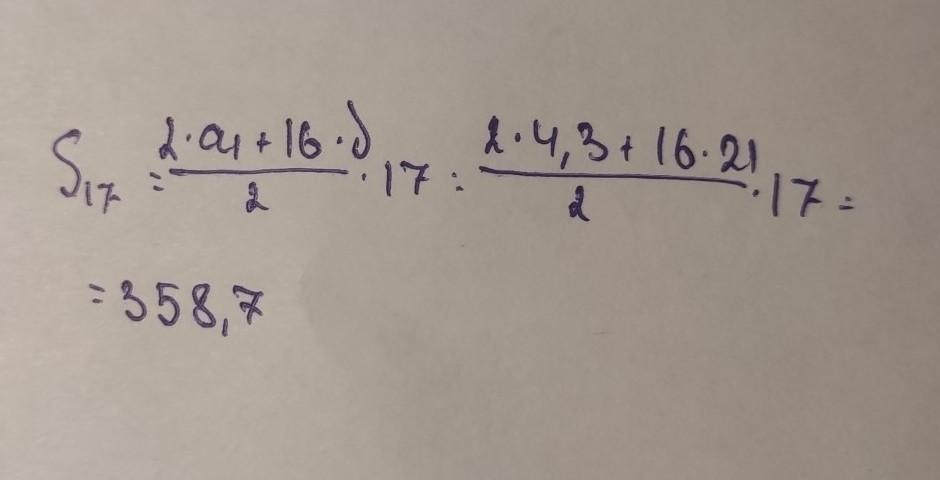 S₁₇ = (2·a₁ + 16·d)/2 · 17 = (2·4,3 + 16·21)/2 · 17 =
= 358,7